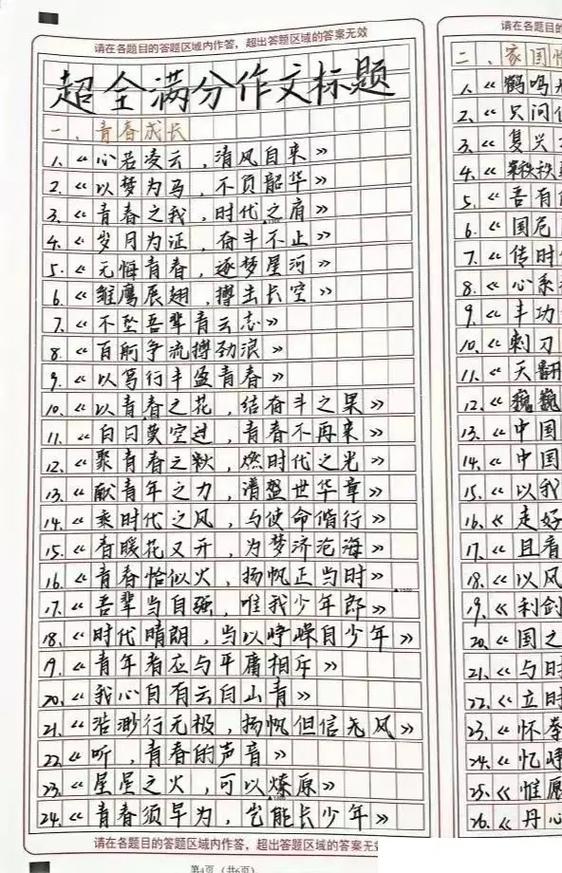 请在各题目的答题区域内作答，超出答题区域的答案无效
超全满分作文标题
一、青春成长
1.《心若凌云，清风自来》
2.《以梦为马，不负韶华》
3.《青春之我，时代之肩》
4.《岁月为证，奋斗不止》
5.《无悔青春，逐梦星河》
6.《雏鹰展翅，搏击长空》
7.《不坠吾辈青云志》
8.《百舸争流搏劲浪》
9.《以笃行丰盈青春》
10.《以青春之花，结奋斗之果》
11.《白日莫空过，青春不再来》
12.《聚青春之,燃时代之光》
13.《献青年之力，谱盛世华章》
14.《乘时代之风，与使命偕行》
15.《春暖花又开，为梦济沧海》
16.《青春恰似火，扬帆正当时》
17.《吾辈当自强，唯我少年郎》
18.《时代晴朗，当以峥嵘自少年》
19.《青年者应与平庸相斥》
20.《我心自有云白山青》
21.《浩渺行无极，扬帆但信无风》
22.《听，青春的声音》
23.《星星之火，可以燎原》
24.《青春须早为，岂能长少年》
请在各题目的答题区域内作答，超出答题区域的答案无效
第4页（共6页）
请在各题目的
二、家国
1.《鹤鸣
2.《只问
3.《复兴
4.《秩秩
5.《吾有
6.《国危
7.《传时
8.《心系
9.《丰功
10.《刺刀
11.《天翻
12.《巍巍
13.《中国
14.《中国
15.《以我
16.《走好
17.《且看
18.《以风
19.《利剑
20.《国之
21.《与时
22.《立时
23.《怀拳
24.《忆峥
25.《惟愿
26.《丹心